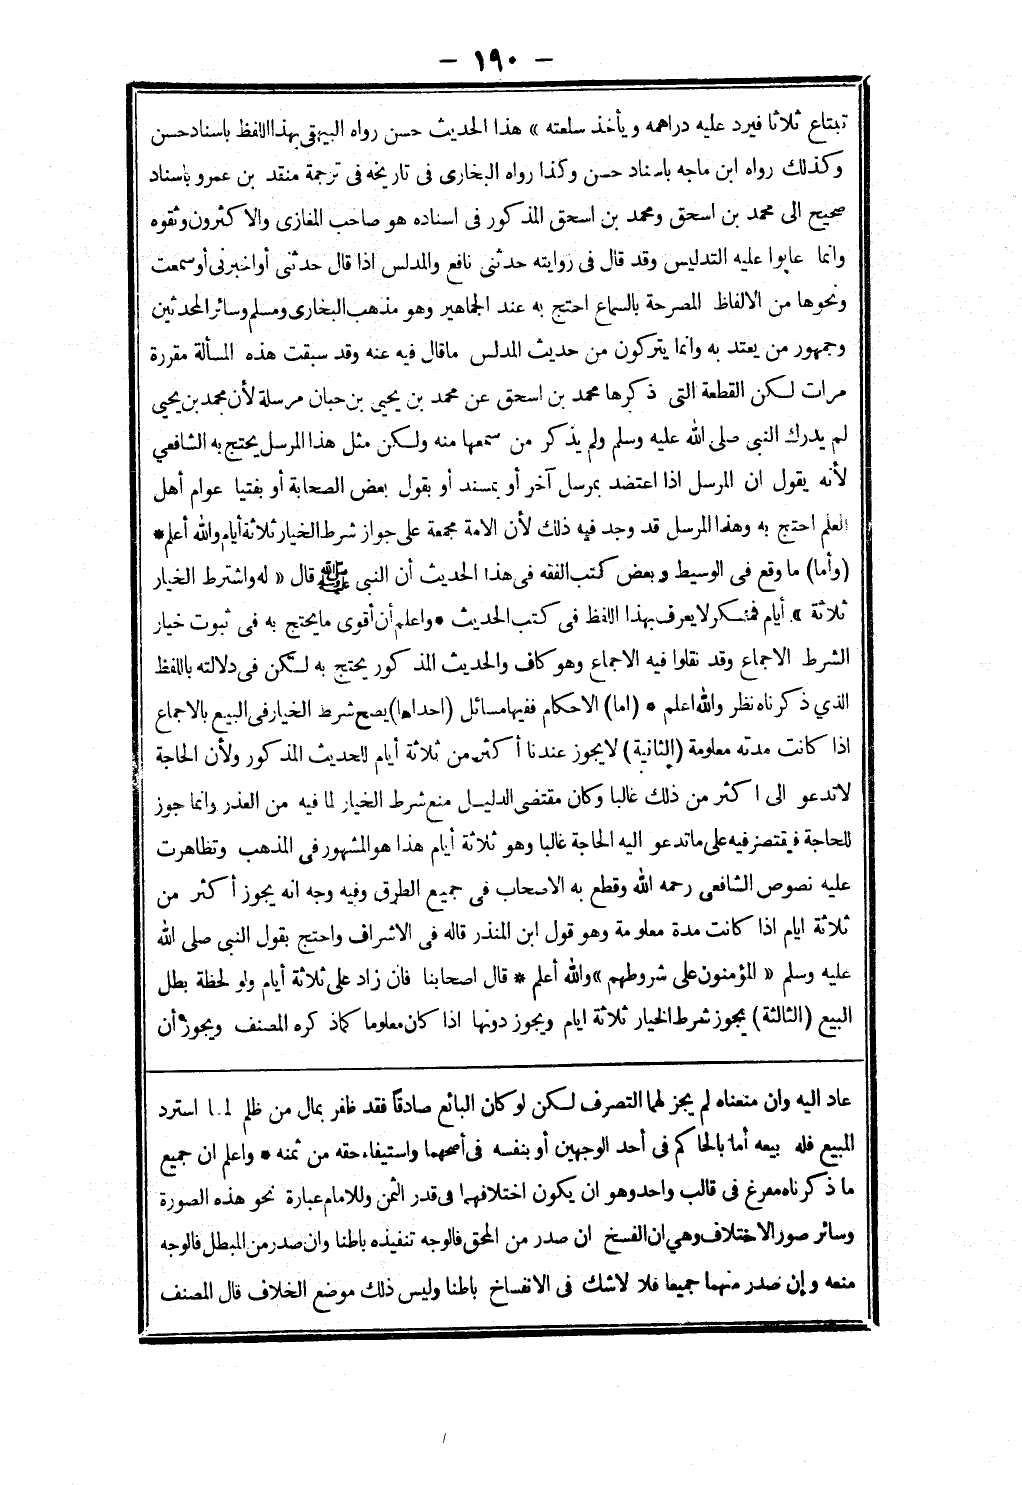 - ١٩٠ -
تبتاع ثلاثا فيرد عليه دراهمه ويأخذ سلعته » هذا الحديث حسن رواه البيهقى بهذا اللفظ باسناد حسن
وكذلك رواه ابن ماجه باسناد حسن وكذا رواه البخارى فى تاريخه فى ترجمة منقد بن عمرو باسناد
صحيح الى محمد بن اسحق ومحمد بن اسحق المذكور فى اسناده هو صاحب المغازى والاكثرون وثقوه
وانما عابوا عليه التدليس وقد قال فى روايته حدثنى نافع والمدلس اذا قال حدثنى أو اخبرنى أو سمعت
ونحوها من الالفاظ المصرحة بالسماع احتج به عند الجماهير وهو مذهب البخارى ومسلم وسائر المحدثين
وجمهور من يعتد به وانما يتركون من حديث المدلس ماقال فيه عنه وقد سبقت هذه المسألة مقررة
مرات لكن القطعة التى ذكرها محمد بن اسحق عن محمد بن يحيى بن حبان مرسلة لأن محمد بن يحيى
لم يدرك النبى صلى الله عليه وسلم ولم يذكر من سمعها منه ولكن مثل هذا المرسل يحتج به الشافعي
لأنه يقول ان المرسل اذا اعتضد بمرسل آخر أو بمسند أو بقول بعض الصحابة أو بفتيا عوام أهل
العلم احتج به وهذا المرسل قد وجد فيه ذلك لأن الامة مجمعة على جواز شرط الخيار ثلاثة أيام والله أعلم *
(وأما) ما وقع فى الوسيط وبعض كتب الفقه فى هذا الحديث أن النبى ﷺ قال « له واشترط الخيار
ثلاثة » أيام فمنكر لا يعرف بهذا اللفظ فى كتب الحديث * واعلم أن أقوى ما يحتج به فى ثبوت خيار
الشرط الاجماع وقد نقلوا فيه الاجماع وهو كاف والحديث المذكور يحتج به لكن فى دلالته باللفظ
الذي ذكرناه نظر والله اعلم * (اما) الاحكام ففيها مسائل (احداها) يصح شرط الخيار فى البيع بالاجماع
اذا كانت مدته معلومة (الثانية) لا يجوز عندنا أكثر من ثلاثة أيام للحديث المذكور ولأن الحاجة
لاتدعو الى اكثر من ذلك غالبا وكان مقتضى الدليل منع شرط الخيار لما فيه من العذر وانما جوز
للحاجة فيقتصر فيه على ماتدعو اليه الحاجة غالبا وهو ثلاثة أيام هذا هو المشهور فى المذهب وتظاهرت
عليه نصوص الشافعى رحمه الله وقطع به الاصحاب فى جميع الطرق وفيه وجه انه يجوز أكثر من
ثلاثة ايام اذا كانت مدة معلومة وهو قول ابن المنذر قاله فى الاشراف واحتج بقول النبى صلى الله
عليه وسلم « المؤمنون على شروطهم » والله أعلم * قال اصحابنا فان زاد على ثلاثة أيام ولو لحظة بطل
البيع (الثالثة) يجوز شرط الخيار ثلاثة ايام ويجوز دونها اذا كان معلوما كماذكره المصنف ويجوز أن
عاد اليه وان منعناه لم يجز لهما التصرف لكن لو كان البائع صادقاً فقد ظفر بمال من ظلم لما استرد
المبيع فله بيعه أما بالحاكم فى أحد الوجهين أو بنفسه فى أصحهما واستيفاء حقه من ثمنه * واعلم ان جميع
ما ذكرناه مفرغ فى قالب واحد وهو ان يكون اختلافهما فى قدر الثمن وللامام عبارة نحو هذه الصورة
وسائر صور الاختلاف وهي ان الفسخ ان صدر من المحق فالوجه تنفيذه باطنا وان صدر من المبطل فالوجه
منعه وإن صدر منهما جميعا فلا لاشك فى الانفساخ باطنا وليس ذلك موضع الخلاف قال المصنف